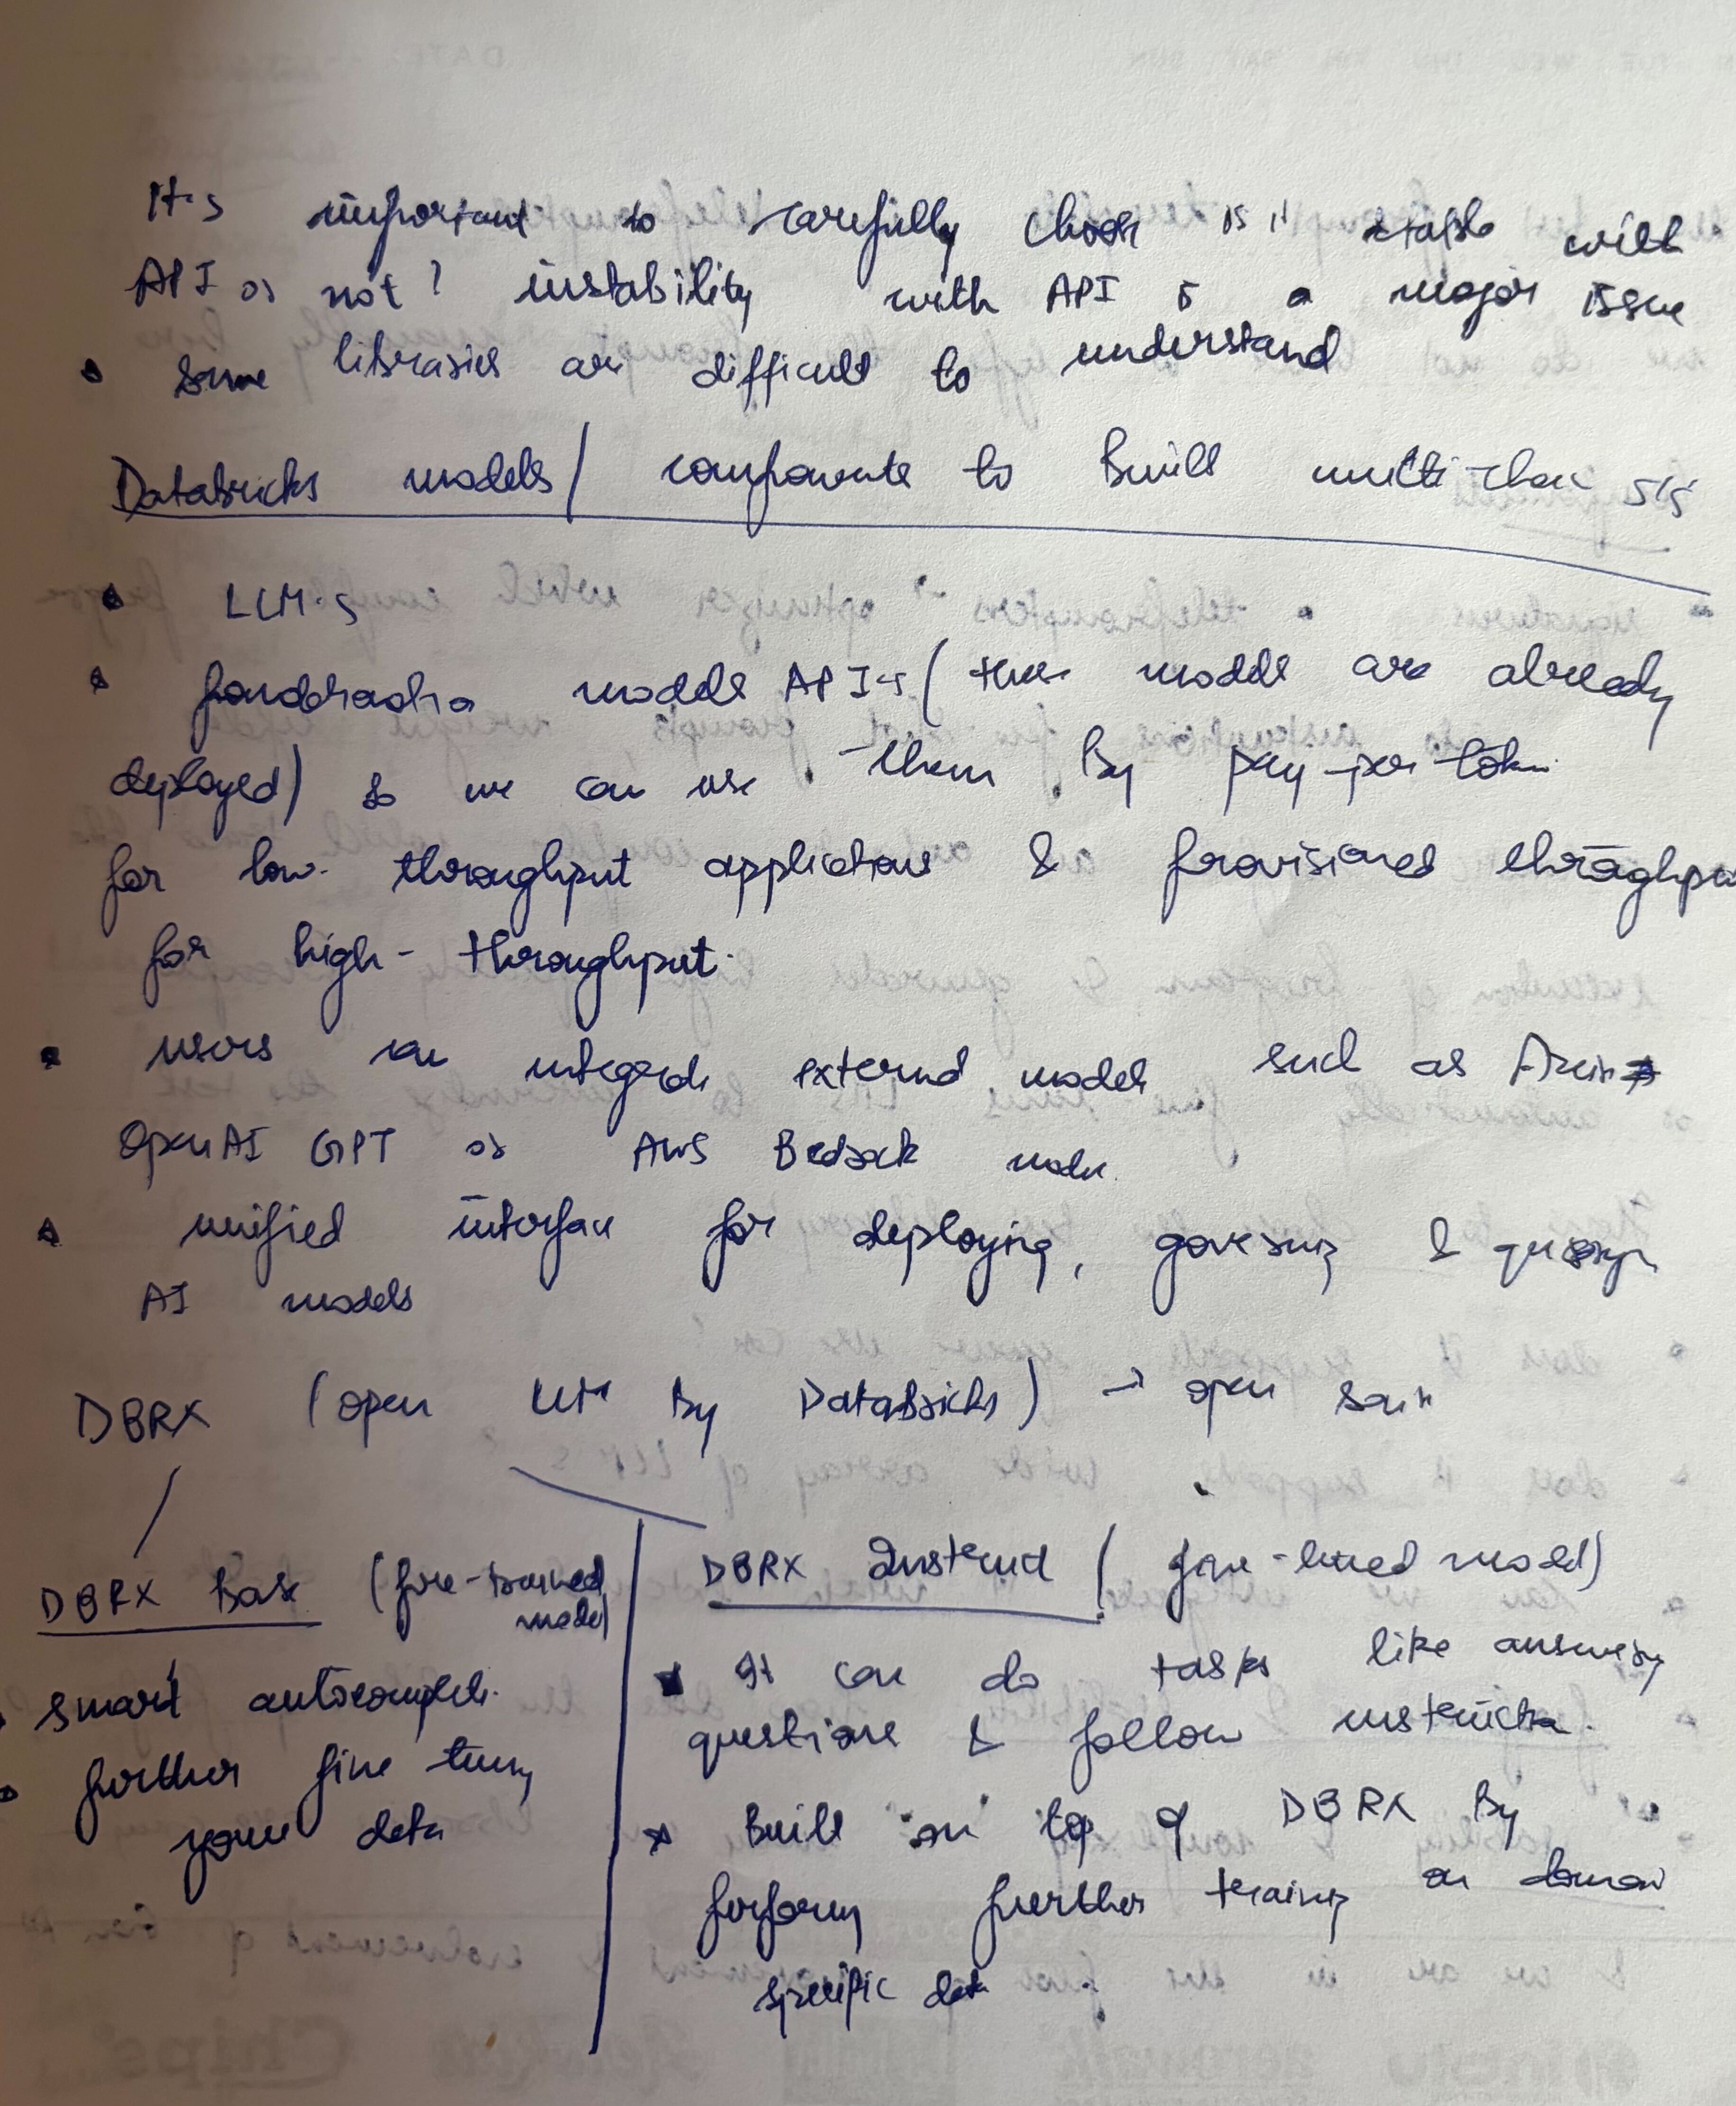 It's important to carefully choose is it stable with
API or not? instability with API is a major issue
• some libraries are difficult to understand
Databricks models / components to Built multi-chain sys
• LLM's
• models API's (these models are already
deployed) so we can use them by pay-per-token
for low throughput applications & provisioned throughput
for high-throughput.
• users can integrate external models such as Azure
OpenAI GPT or AWS Bedrock model
• unified interface for deploying, governing & querying
AI models
DBRX (open LLM by Databricks) → open source
DBRX Base (pre-trained
model)
• smart autocomplete.
• further fine tuning
your data
DBRX Instruct (fine-tuned model)
• It can do tasks like answering
questions & follow instruction.
• Built on top of DBRX By
performing further training on domain
specific data